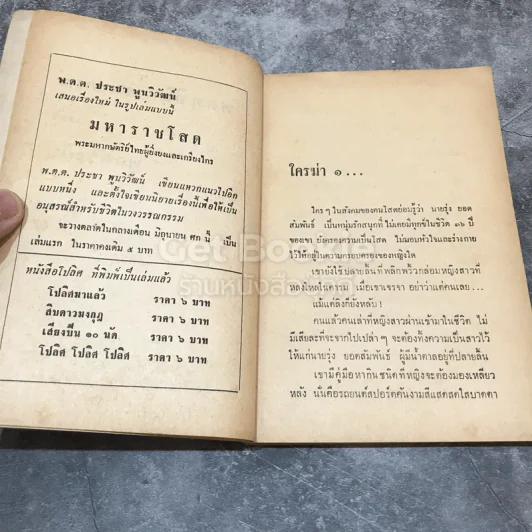 พ.ต.ต. ประชา พูนวิวัฒน์
เสนอเรื่องใหม่ ในรูปเล่มแบบนี้
มหาราชโสด
พระมหากษัตริย์ไทยผู้ยิ่งยงและเกรียงไกร
พ.ต.ต. ประชา พูนวิวัฒน์ เขียนแหวกแนวไปอีก
แบบหนึ่ง และตั้งใจเขียนนิยายเรื่องนี้เพื่อให้เป็น
อนุสรณ์สำหรับชีวิตในวงวรรณกรรม
จะวางตลาดในกลางเดือน มิถุนายน ศก นี้ เป็น
เล่มแรก ในราคาคงเดิม ๕ บาท
หนังสือโปลิศ ที่พิมพ์เป็นเล่มแล้ว
โปลิศมาแล้ว ราคา ๖ บาท
สิบดาวมงกุฎ ราคา ๖ บาท
เสียงปืน ๑๐ นัด ราคา ๖ บาท
โปลิศ โปลิศ โปลิศ ราคา ๖ บาท
ใครฆ่า ๑...
ใครๆ ในสังคมของคนโสดย่อมรู้ว่า นายรุ่ง ยอด
สัมพันธ์ เป็นหนุ่มรักสนุกที่ ไม่เคยมีทุกข์ในชีวิต ๓๖ ปี
ของเขา ยังครองความเป็นโสด ไม่มอบหัวใจและร่างกาย
ไว้ให้อยู่ในความครอบครองของหญิงใด
เขายังใช้ปลายลิ้นที่พลิกพริ้วกล่อมหญิงสาวที่
หลงใหลในคารม เมื่อเขาเจรจา อย่าว่าแต่คนเลย...
แม้แต่ลิงก็ยังหลับ!
คนแล้วคนเล่าที่หญิงสาวผ่านเข้ามาในชีวิต ไม่
มีเสียละที่จะจากไปเปล่าๆ จะต้องทิ้งความเป็นสาวไว้
ให้แก่นายรุ่ง ยอดสัมพันธ์ ผู้มีน้ำตาลอยู่ที่ปลายลิ้น
เขามีคู่มือหากินชนิดที่หญิงจะต้องมองเหลียว
หลัง นั่นคือรถยนต์สปอร์ตคันงามสีแสดสดใสบาดตา
Get Bookie
ร้านหนังสือ